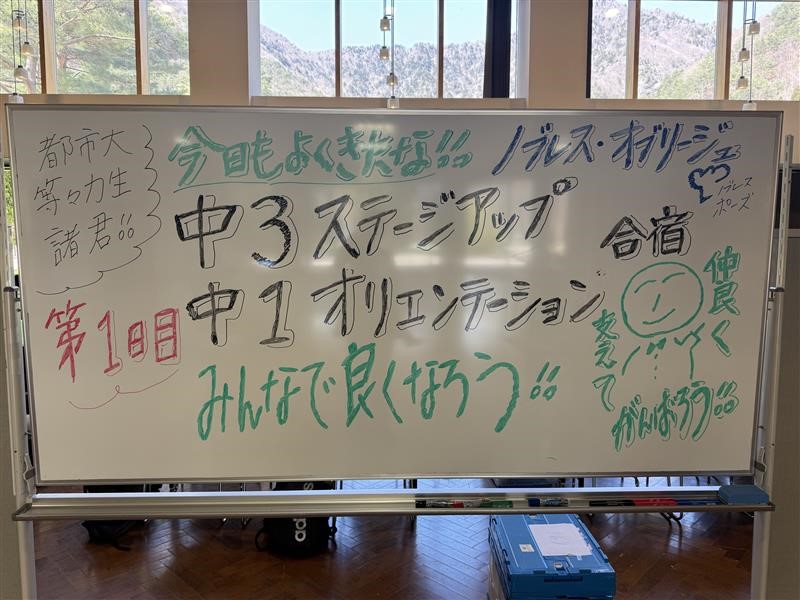 都市大
等々力生
諸君!!
今日もよくきたな!!
ノブレス・オブリージュ
ノブレス
ポーズ
中3 ステージアップ
合宿
中1 オリエンテーション
第1日目
みんなで良くなろう!!
仲良く
支えて
がんばろう!!
adidas